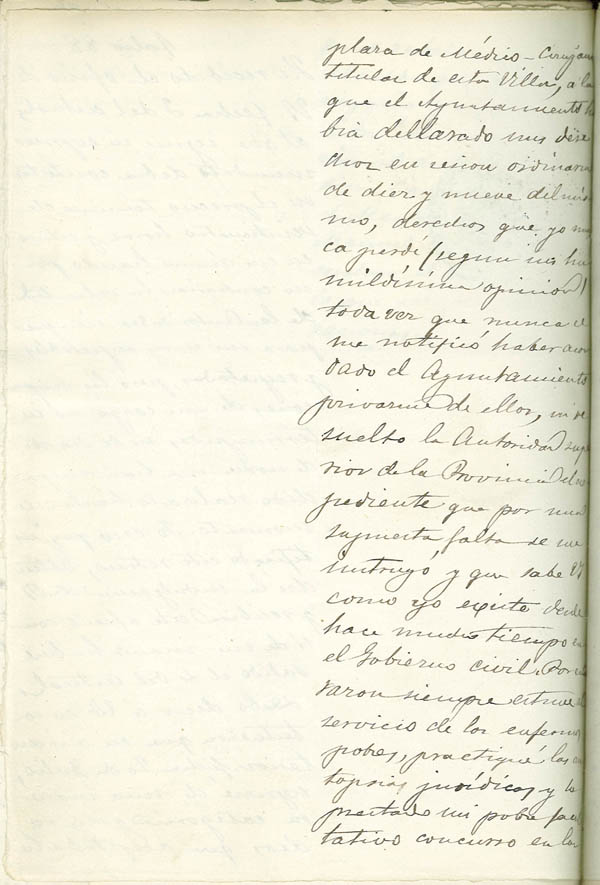 plaza de Médico-Cirujano
titular de esta Villa, a la
que el Ayuntamiento ha
bia declarado mis dere
chos en sesion ordinaria
de diez y nueve del mis
mo, derechos que yo nun
ca perdí (segun mi hu
mildísima opinion)
toda vez que nunca se
me notificó haber acor
dado el Ayuntamiento
privarme de ellos, ni re
suelto la Autoridad supe
rior de la Provincia el ex
pediente que por una
supuesta falta se me
instruyó y que sabe Vd
como yo existe desde
hace mucho tiempo en
el Gobierno civil. Por esta
razon siempre estuve al
servicio de los enfermos
pobres, practiqué las au
topsias jurídicas y he
prestado mi pobre facul
tativo concurso en los